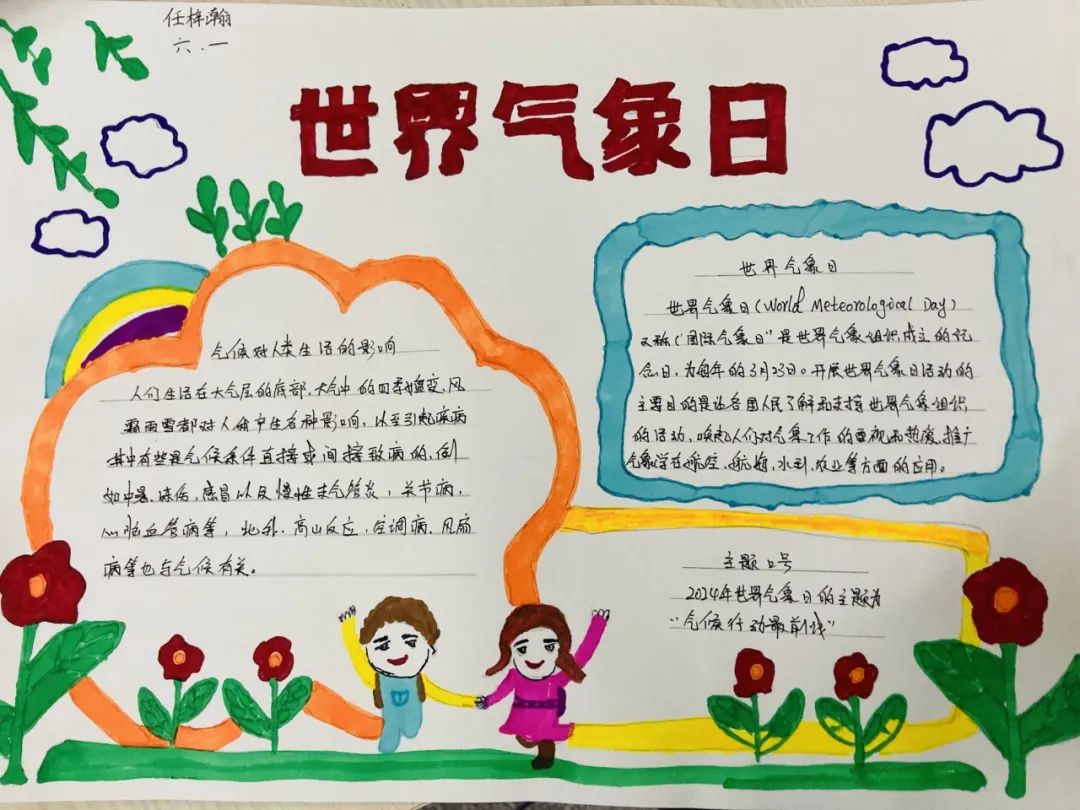 任梓瀚
六.一
世界气象日
气候对人类生活的影响
人们生活在大气层的底部,大气中的四季嬗变,风
霜雨雪都对人体产生各种影响,以至引起疾病
其中有些是气候条件直接或间接致病的,例
如中暑、冻伤、感冒以及慢性支气管炎,关节病,
心脑血管病等,此外,高山反应,空调病,风扇
病等也与气候有关。
世界气象日
世界气象日(World Meteorological Day)
又称“国际气象日”是世界气象组织成立的纪
念日,为每年的3月23日。开展世界气象日活动的
主要目的是让各国人民了解和支持世界气象组织
的活动,唤起人们对气象工作的重视和热爱,推广
气象学在航空、航海、水利、农业等方面的应用。
主题口号
2024年世界气象日的主题为
“气候行动最前线”